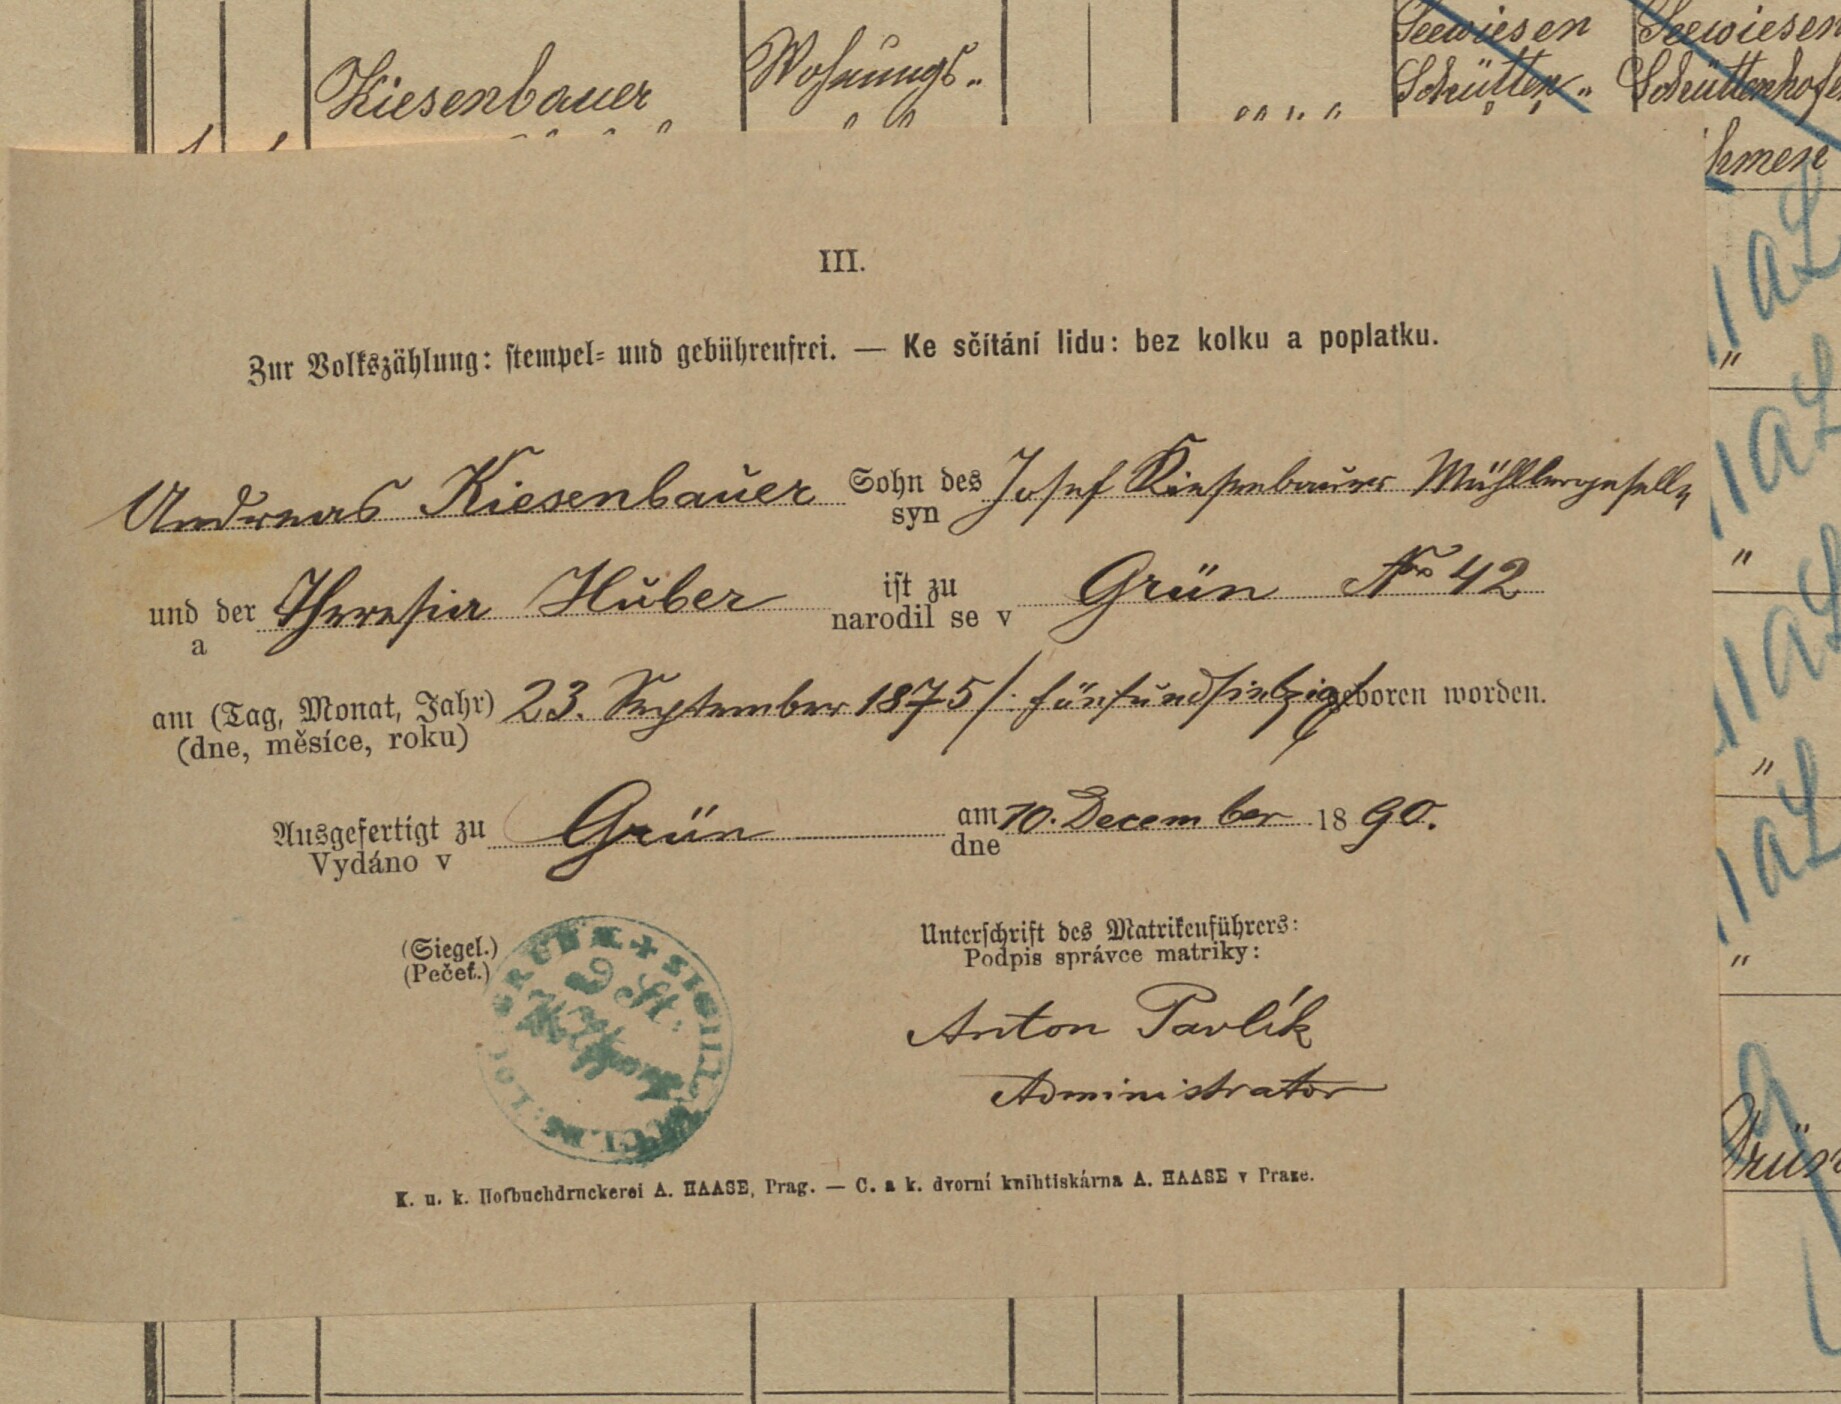 Kiesenbauer
Wohnungs„
Seewiesen
Schütten„
Seewiesen
Schüttenhofen
III.
Zur Volkszählung: stempel- und gebührenfrei. — Ke sčítání lidu: bez kolku a poplatku.
Andreas Kiesenbauer Sohn des Josef Kiesenbauer Mühlergeselle
syn
und der Theresia Huber ist zu Grün No 42
a narodil se v
am (Tag, Monat, Jahr) 23. September 1875 /: fünfundsiebzig geboren worden.
(dne, měsíce, roku)
Ausgefertigt zu Grün am 10. December 1890.
Vydáno v dne
(Siegel.)
(Pečeť.)
Unterschrift des Matrikenführers:
Podpis správce matriky:
Anton Pavlík
Administrator
K. u. k. Hofbuchdruckerei A. HAASE, Prag. — C. a k. dvorní knihtiskárna A. HAASE v Praze.